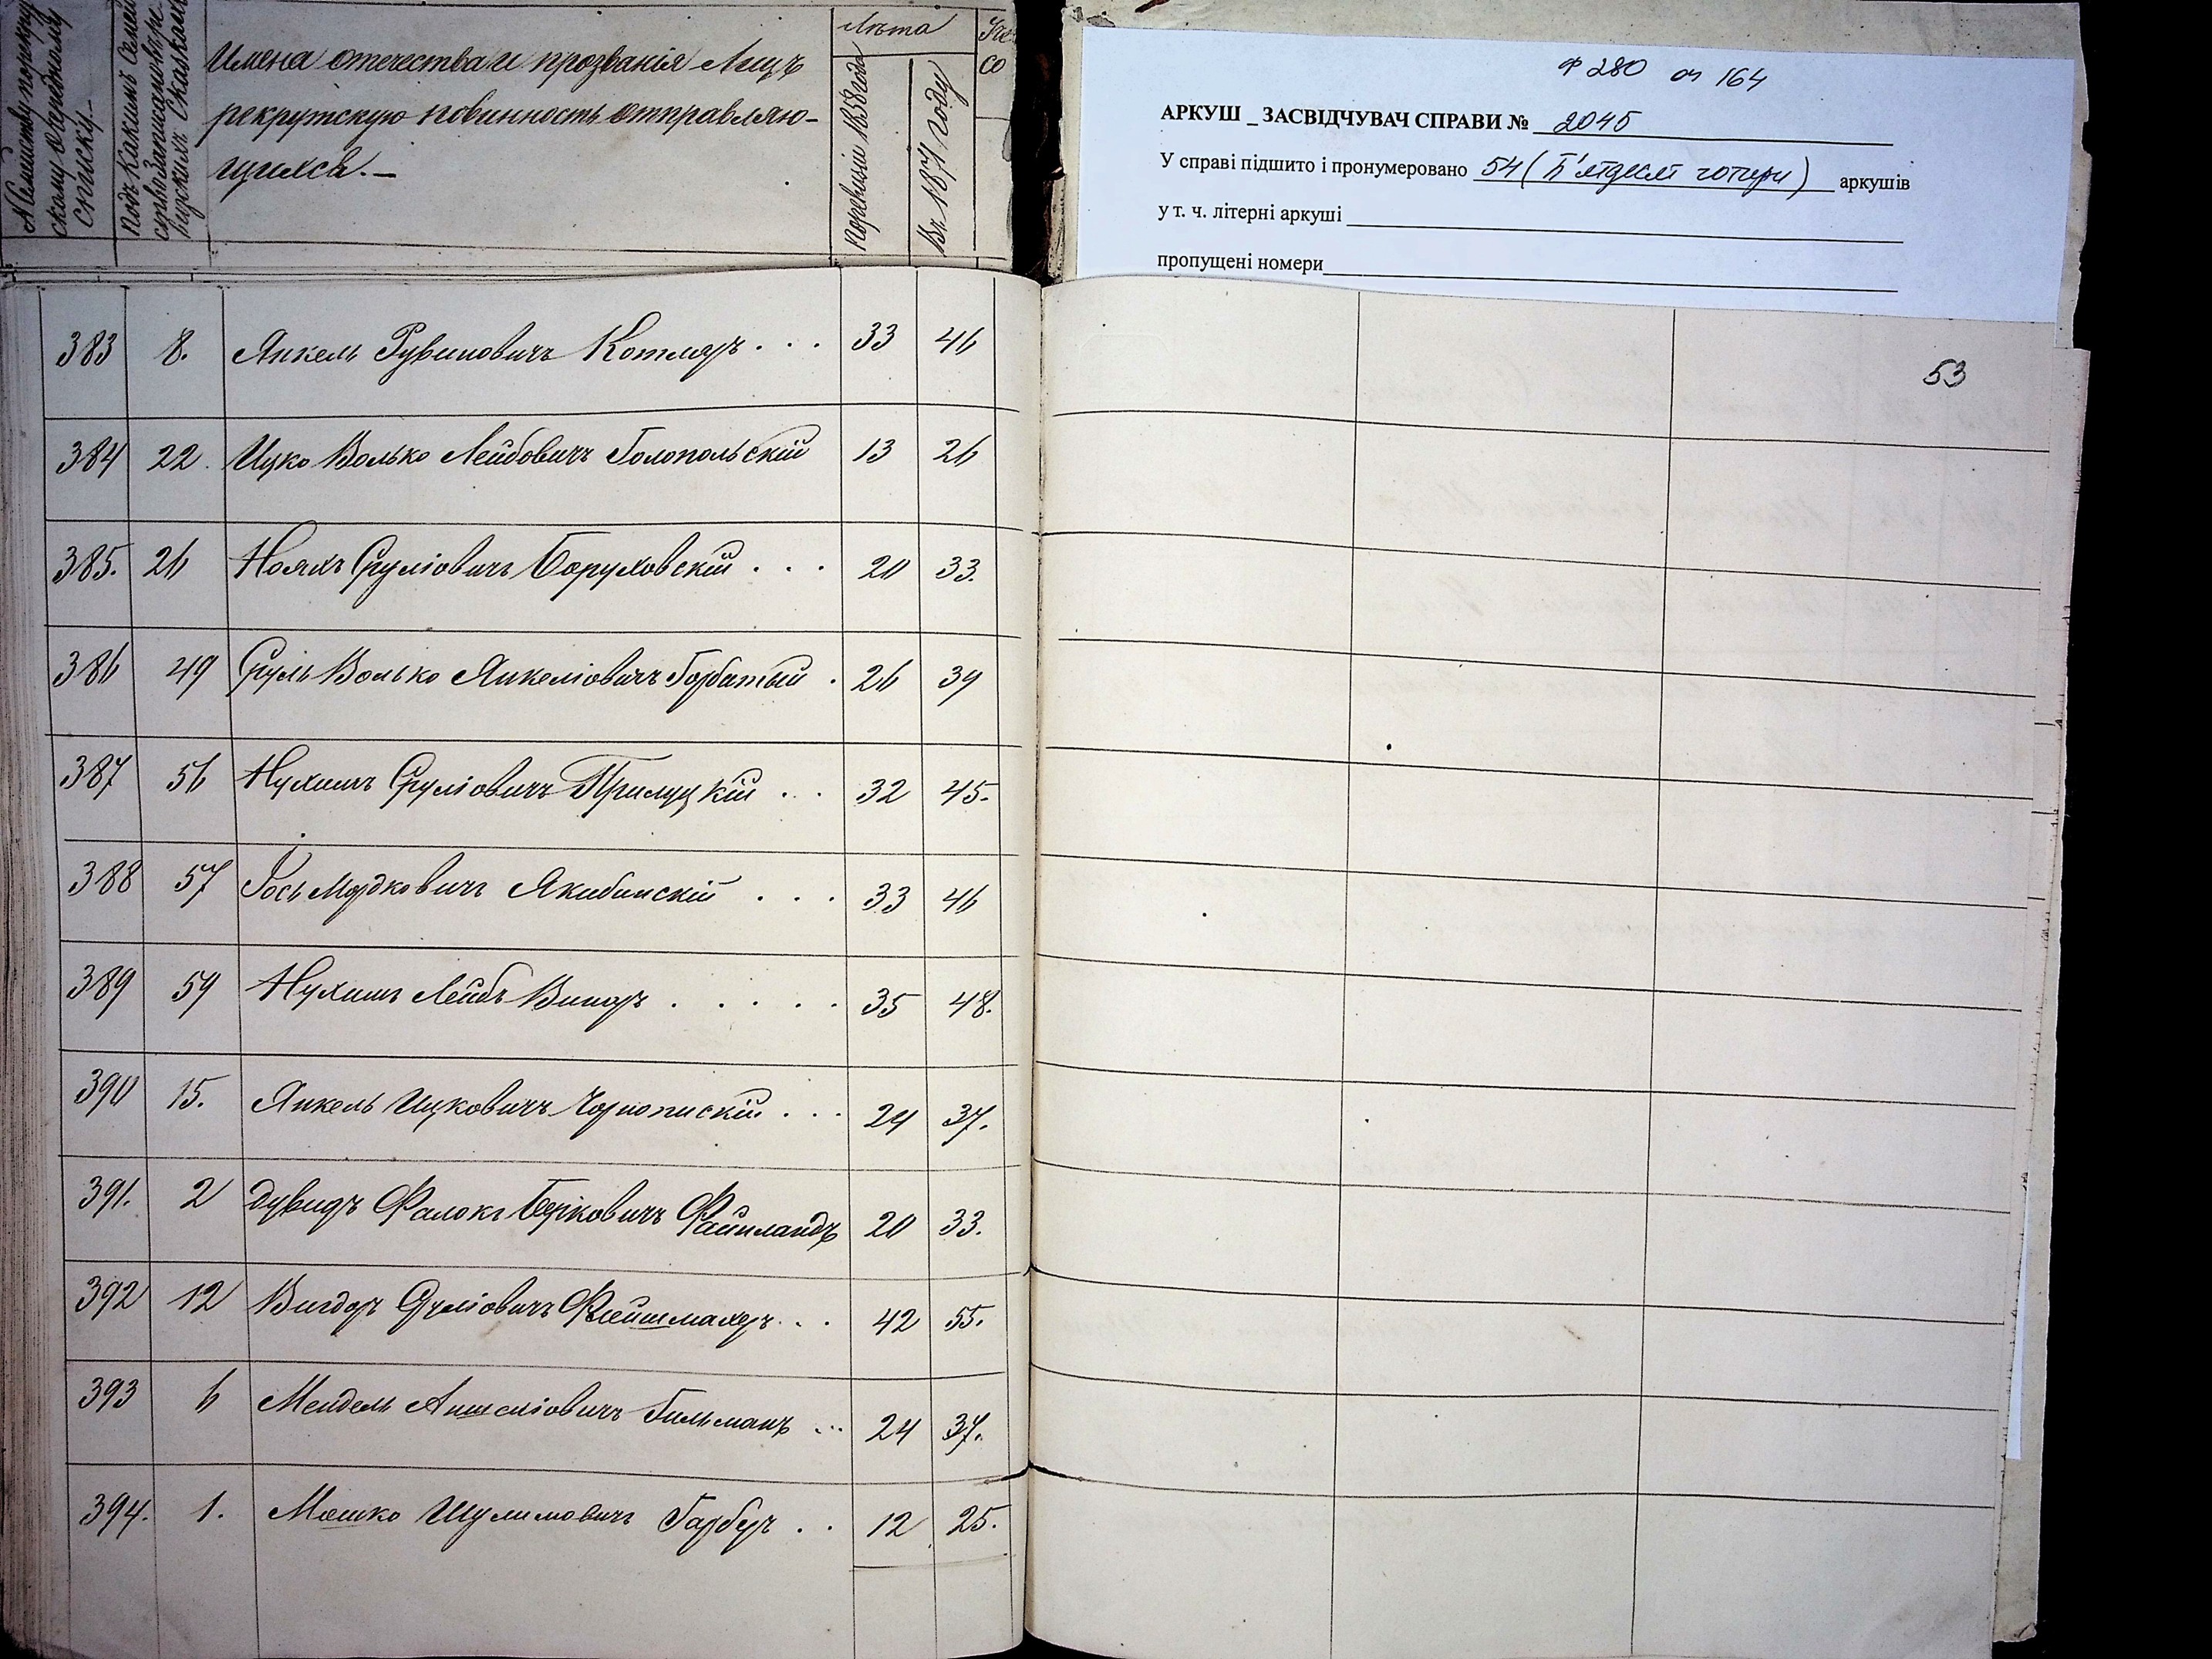 № Семейству по рекрут
скому очередному
списку.
Подъ какимъ Семей
ствомъ записаны въ ре
визскихъ Сказкахъ
Имена отечества и прозванія Лицъ
рекрутскую повинность отправляю-
щихся.
Лѣта
по ревизіи 1858 года
Въ 1871 году
383 8. Янкель Рувиновичъ Котляръ . . . 33 46
384 22. Ицко Волько Лейбовичъ Голопольскій 13 26
385. 26 Ноахъ Сруліовичъ Боруховскій . . . 20 33.
386 49 Сруль Волько Янкеліовичъ Горбатый . 26 39
387 56 Нухимъ Сруліовичъ Прилуцкій . . . 32 45.
388 57 Іось Мордковичъ Якибинскій . . . 33 46
389 59 Нухимъ Лейбъ Винаръ . . . . . 35 48.
390 15. Янкель Ицковичъ Чорнопискій . . . 24 37.
391. 2 Дувидъ Фалокъ Берковичъ Файнландъ 20 33.
392 12 Вигдоръ Сруліовичъ Флейшмахеръ . . . 42 55.
393 6 Мендель Аншеліовичъ Гильманъ ... 24 37.
394. 1. Мошко Шулимовичъ Гарберъ . . 12 25.
Ф 280 оп 164
АРКУШ _ ЗАСВІДЧУВАЧ СПРАВИ № 2045
У справі підшито і пронумеровано 54 (П'ятдесят чотири) аркушів
у т. ч. літерні аркуші
пропущені номери
53